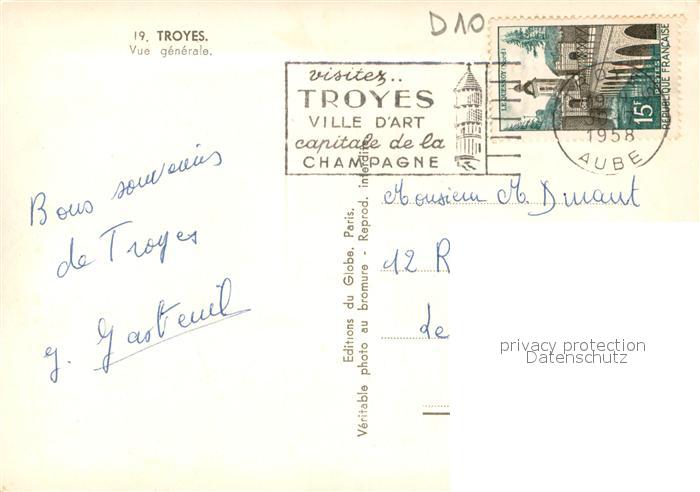 19. TROYES.
Vue générale.
D10
visitez..
TROYES
VILLE D'ART
capitale de la
CHAMPAGNE
15F
POSTES
REPUBLIQUE FRANÇAISE
1958
AUBE
Bons souvenirs
de Troyes
Editions du Globe, Paris.
Véritable photo au bromure - Reprod. interdite
Monsieur M. Dinant
12 R
de
privacy protection
Datenschutz